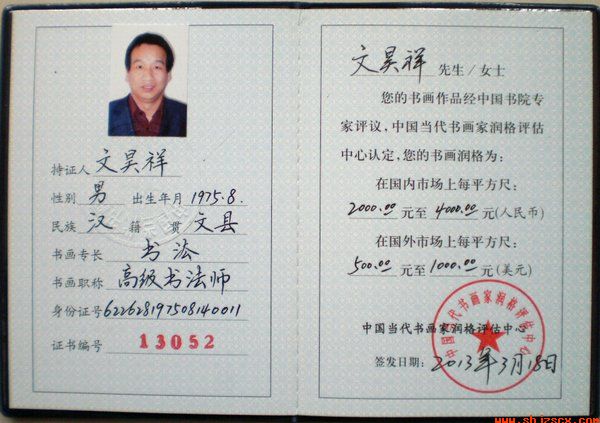 持证人 文昊祥
性别 男 出生年月 1975.8.
民族 汉 籍贯 文县
书画专长 书法
书画职称 高级书法师
身份证号 622628197508140011
证书编号 13052
文昊祥 先生/女士
您的书画作品经中国书院专
家评议,中国当代书画家润格评估
中心认定,您的书画润格为:
在国内市场上每平方尺:
2000.00 元至 4000.00 元(人民币)
在国外市场上每平方尺:
500.00 元至 1000.00 元(美元)
中国当代书画家润格评估中心
中国当代书画家润格评估中心
签发日期: 2013年3月18日
www.sbjzscx.com